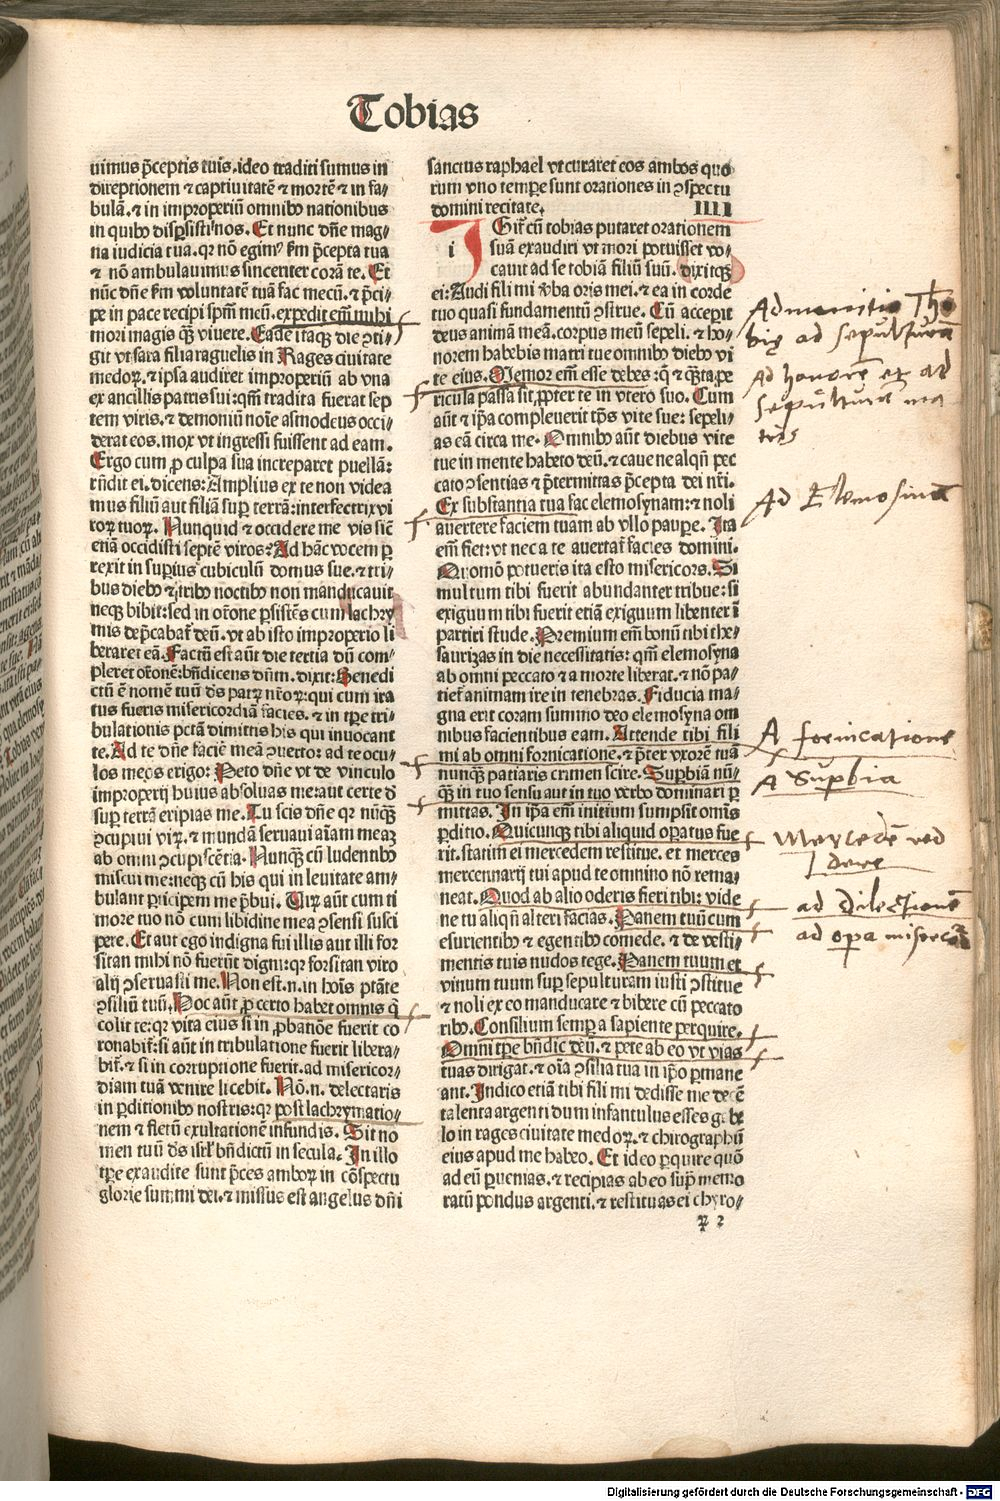 Tobias
uimus p̄ceptis tuis.ideo traditi sumus in
direptionem ⁊ captiuitatē ⁊ mortē ⁊ in fa⸗
bulā.⁊ in improperiū omnibꝰ nationibus
in quibꝰ disꝑsisti nos. Et nunc dn̄e mag⸗
na iudicia tua.qꝛ nō egimꝰ ẜm p̄cepta tua
⁊ nō ambulauimus sincenter corā te. Et
nūc dn̄e ẜm voluntatē tuā fac mecū.⁊ p̄ci⸗
pe in pace recipi spm̄ meū.expedit em̄ mihi
mori magis qꝫ viuere. Eadē itaqꝫ die ↄti⸗
git vt sara filia raguelis in Rages ciuitate
medoꝝ.⁊ ipsa audiret improperiū ab vna
ex ancillis patris sui:qm̄ tradita fuerat sep
tem viris.⁊ demoniū noīe asmodeus occi⸗
derat eos.mox vt ingressi fuissent ad eam.
Ergo cum ꝓ culpa sua increparet puellā:
rn̄dit ei.dicens:Amplius ex te non videa
mus filiū aut filiā suꝑ terrā:interfectrix vi
roꝝ tuoꝝ. Nunquid ⁊ occidere me vis sic̄
etiā occidisti septē viros:Ad hāc vocem ꝑ
rexit in superiꝰ cubiculū domus sue.⁊ tri⸗
bus diebꝰ ⁊ tribꝰ noctibꝰ non manducauit
neqꝫ bibit:sed in ōrone ꝑsistēs cum lachry
mis dep̄cabat̄ deū.vt ab isto improperio li
beraret eā.Factū est aūt die tertia dū com⸗
pleret ōronē:bn̄dicens dn̄m.dixit:Benedi
ctū ē nomē tuū ds̄ patꝝ nr̄oꝝ:qui cum ira
tus fueris misericordiā facies.⁊ in tꝑe tri⸗
bulationis pctā dimittis his qui inuocant
te.Ad te dn̄e faciē meā ↄuerto:ad te ocu⸗
los meos erigo:Peto dn̄e vt de vinculo
improperij huius absoluas me:aut certe d̄
suꝑ terrā eripias me.Tu scis dn̄e qꝛ nūqꝫ
ↄcupiui viꝝ.⁊ mundā seruaui aīam meaꝫ
ab omni ↄcupiscētia.Nunqꝫ cū ludentibꝰ
miscui me:neqꝫ cū his qui in leuitate am⸗
bulant ꝑticipem me p̄bui. Viꝝ aūt cum ti
more tuo nō cum libidine mea ↄsensi susci
pere.Et aut ego indigna fui illis aut illi for
sitan mihi nō fuerūt digni:qꝛ forsitan viro
alij ↄseruasti me.Non est.n.in hoīs ptāte
ↄsiliū tuū.Hoc aūt ꝓ certo habet omnis q̄
colit te:qꝛ vita eius si in ꝓbatiōe fuerit co
ronabit̄:si aūt in tribulatione fuerit libera⸗
bit̄.⁊ si in corruptione fuerit.ad misericor⸗
diam tuā venire licebit. Nō.n. delectaris
in ꝑditionibꝰ nostris:qꝛ post lachrymatio⸗
nem ⁊ fletū exultationē infundis. Sit no
men tuū ds̄ isrl̄ bn̄dictū in secula. In illo
tꝑe exaudite sunt p̄ces amboꝝ in cōspectu
glorie summi dei.⁊ missus est angelus dn̄i
sanctus raphael vt curaret eos ambos quo
rum vno tempe̱ sunt orationes in ↄspectu
domini recitate. IIII
i Git̄ cū tobias putaret orationem
suā exaudiri vt mori potuisset vo⸗
cauit ad se tobiā filiū suū. dixitqꝫ
ei:Audi fili mi v̄ba oris mei.⁊ ea in corde
tuo quasi fundamentū ↄstrue. Cū acceꝑit
deus animā meā.corpus meū sepeli.⁊ ho⸗
norem habebis matri tue omnibꝰ diebꝰ vi
te eius. Memor em̄ esse debes:q̄ ⁊ q̄ta ꝑe
ricula passa sit ꝓpter te in vtero suo. Cum
aūt ⁊ ip̄a compleuerit tp̄s vite sue: sepeli⸗
as eā circa me. Omnibꝰ aūt diebus vite
tue in mente habeto deū.⁊ caue ne alqn̄ pec
cato ↄsentias ⁊ p̄termittas p̄cepta dei nr̄i.
Ex substantia tua fac elemosynam:⁊ noli
auertere faciem tuam ab vllo pauꝑe. Ita
em̄ fiet:vt nec a te auertat̄ facies domini.
Quomō potueris ita esto misericors. Si
multum tibi fuerit abundanter tribue:si
exiguum tibi fuerit etiā exiguum libenter ī
partiri stude. Premium em̄ bonū tibi the⸗
saurizas in die necessitatis: qm̄ elemosyna
ab omni peccato ⁊ a morte liberat.⁊ nō pa⸗
tiet̄ animam ire in tenebras. Fiducia ma⸗
gna erit coram summo deo elemosyna om
nibus facientibus eam. Attende tibi fili
mi ab omni fornicatione.⁊ p̄ter vxorē tuā
nunqꝫ patiaris crimen scire. Suꝑbiā nū⸗
qꝫ in tuo sensu aut in tuo verbo dominari ꝑ
mittas. In ip̄a em̄ initium sumpsit omīs
ꝑditio. Quicunqꝫ tibi aliquid oꝑatus fue
rit.statim ei mercedem restitue. et merces
mercennarij tui apud te omnino nō rema⸗
neat. Quod ab alio oderis fieri tibi: vide
ne tu aliqn̄ alteri facias. Panem tuū cum
esurientibꝰ ⁊ egentibꝰ comede. ⁊ de vesti⸗
mentis tuis nudos tege. Panem tuum et
vinum tuum suꝑ sepulturam iusti ↄstitue
⁊ noli ex eo manducare ⁊ bibere cū peccato
ribꝰ. Consilium semꝑ a sapiente perquire.
Omni tꝑe bn̄dic deū.⁊ pete ab eo vt vias
tuas dirigat.⁊ oīa ↄsilia tua in ip̄o ꝑmane
ant. Indico etiā tibi fili mi dedisse me decē
talenta argenti dum infantulus esses gabe
lo in rages ciuitate medoꝝ.⁊ chirographū
eius apud me habeo. Et ideo ꝑquire quō
ad eū ꝑuenias.⁊ recipias ab eo sup̄ memo
ratū pondus argenti.⁊ restituas ei chyro⸗
2
Admonitio Tho
bię ad sepulturā
Ad honorē et ad
sepulturā ma
tris
Ad Elemosinā
A fornicatione
A Supbia
Mercedē red
dere
ad dilectionē
ad opa misercōa
Digitalisierung gefördert durch die Deutsche Forschungsgemeinschaft - DFG